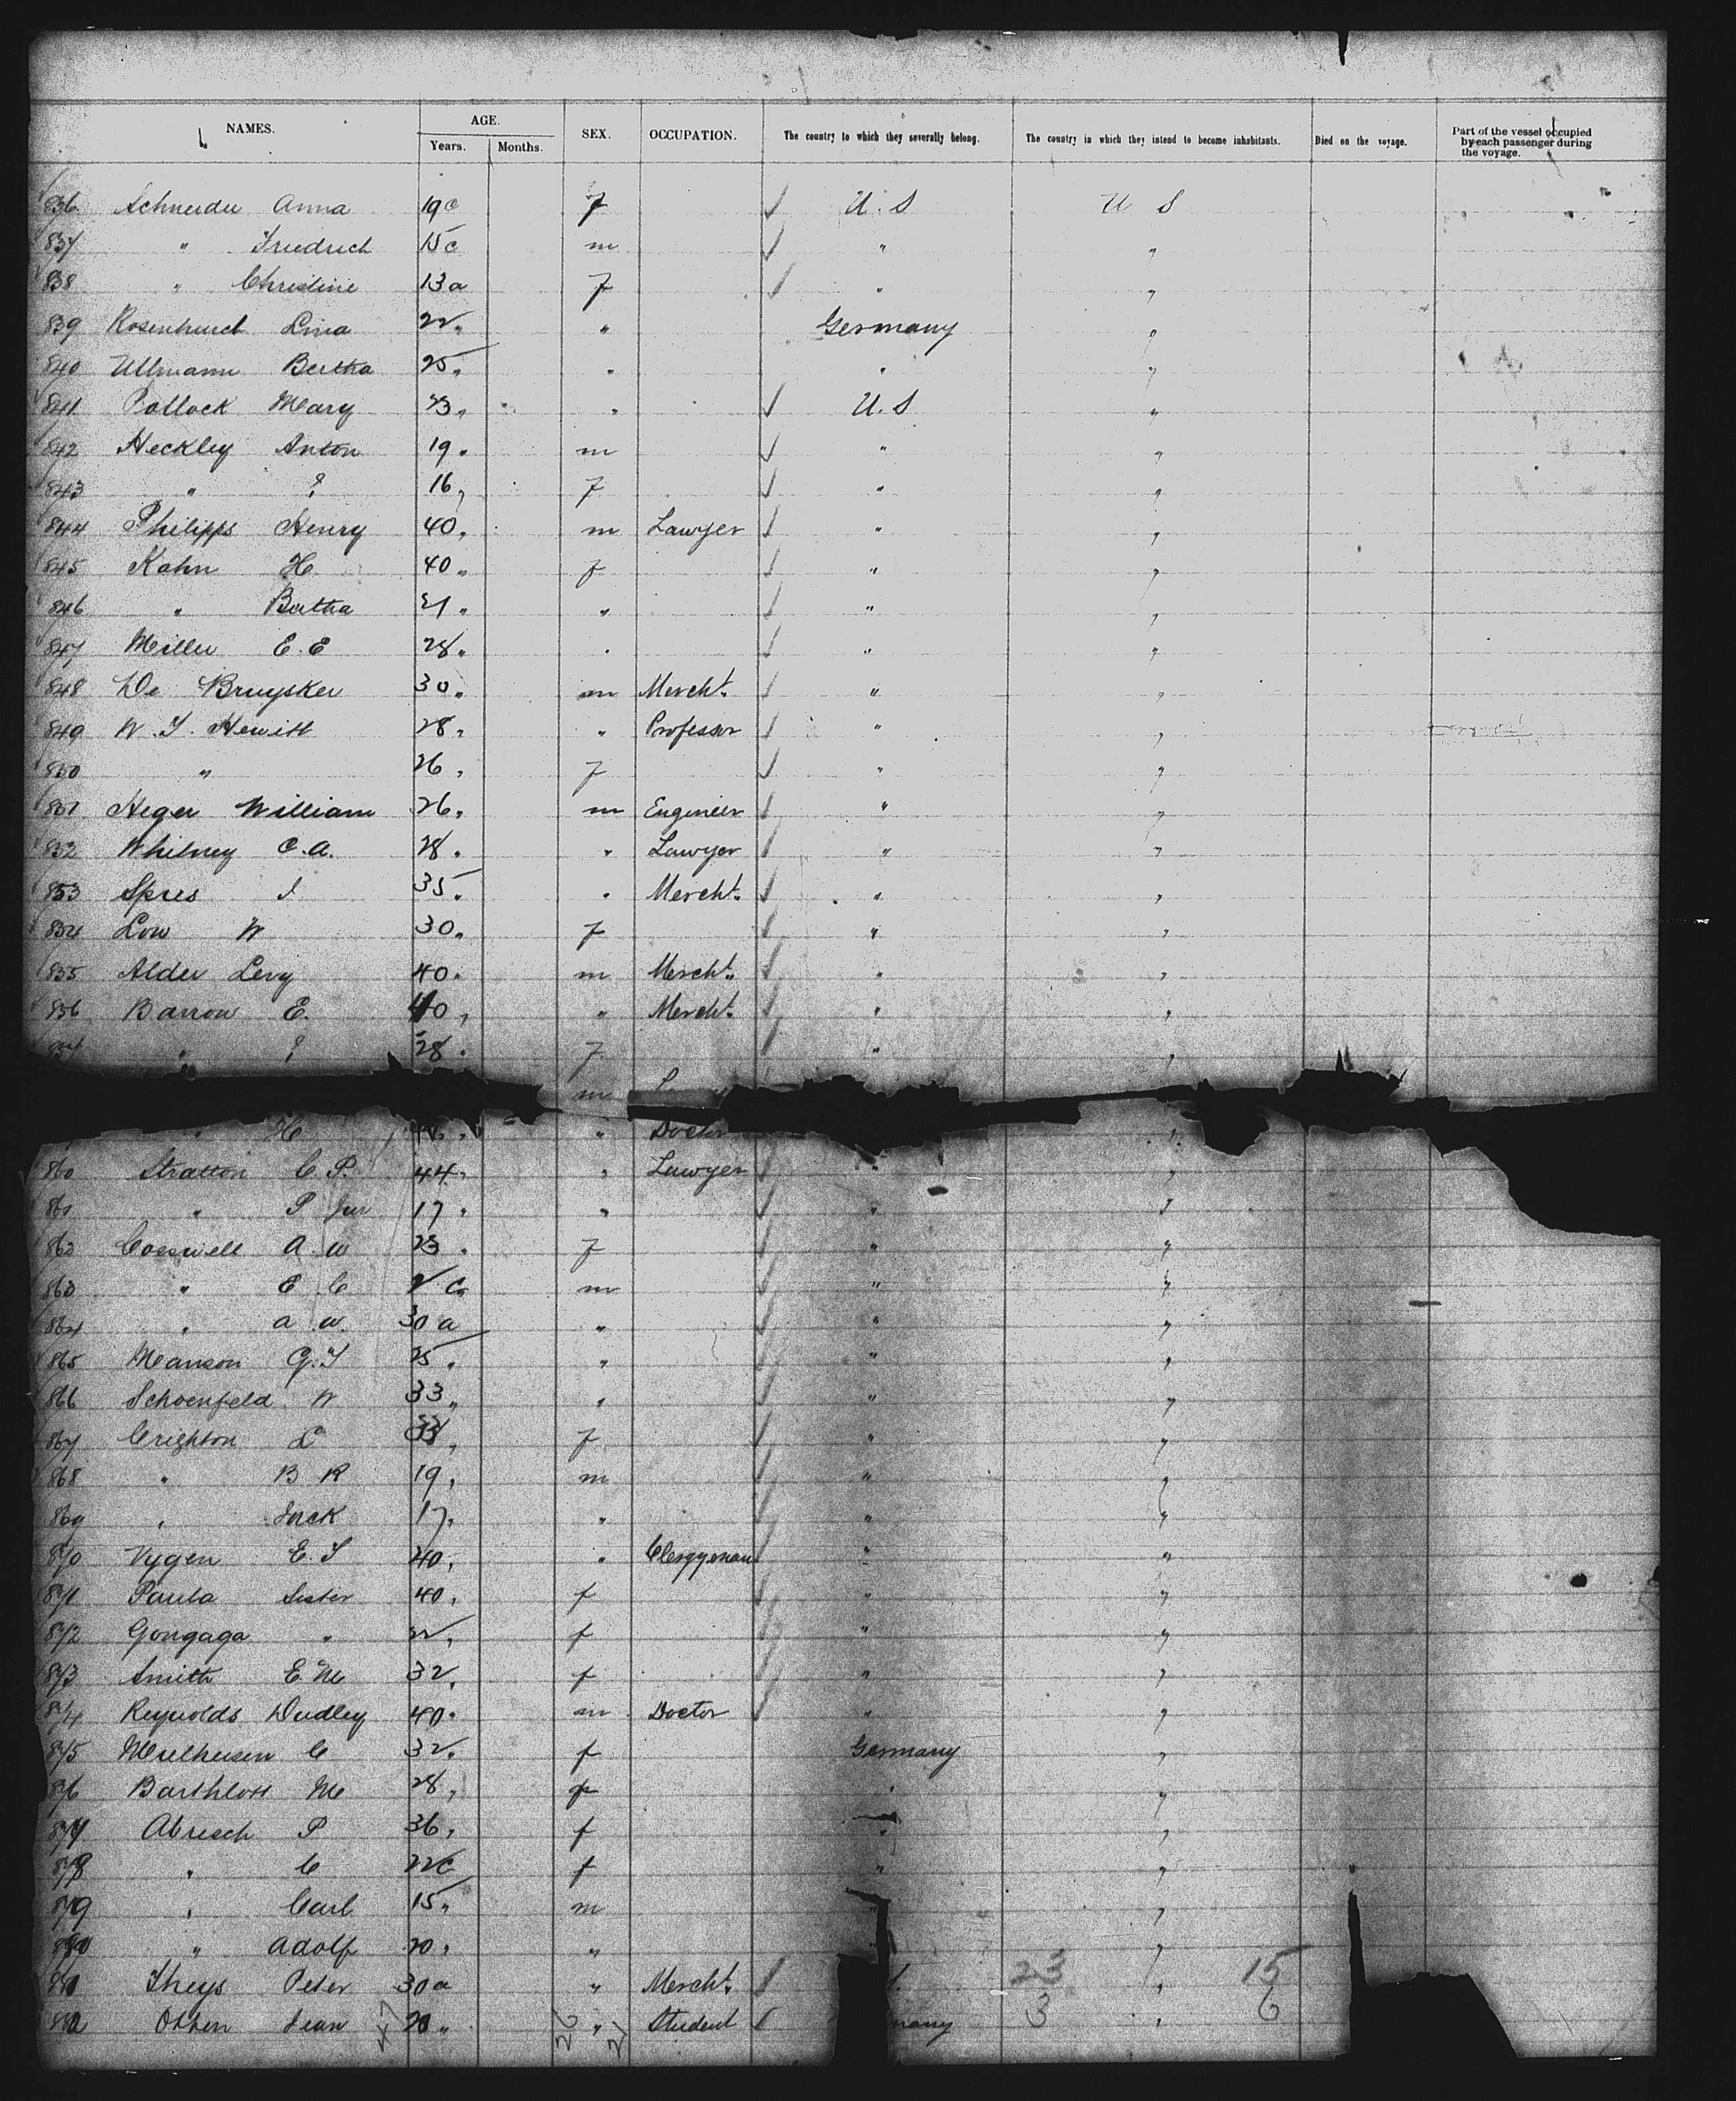 NAMES. AGE. SEX. OCCUPATION. The country to which they severally belong. The country in which they intend to become inhabitants. Died on the voyage. Part of the vessel occupied by each passenger during the voyage.
Years. Months.
836 Schneider Anna 19c f U.S U S
837 " Friedrich 15c m " "
838 " Christine 13a f " "
839 Lina 22 " " Germany "
840 Ullmann Bertha 25 " " " "
841 Pollock Mary 23 " " U.S "
842 Heckley Anton 19 " m " "
843 " ? 16 " f " "
844 Philipps Henry 40 " m Lawyer " "
845 Kahn H 40 " f " "
846 " Bertha 21 " " " "
847 Miller E.E 28 " " " "
848 De Bruysker 30 " m Mercht. " "
849 W.T. Hewitt 28 " " Professor " "
850 " 26 " f " "
851 Heger William 26 " m Engineer " "
852 Whitney C.A. 28 " " Lawyer " "
853 Spies I 35 " " Mercht. " "
854 Low W 30 " f " "
855 Alder Levy 40 " m Mercht. " "
856 Barrow E. 40 " " Mercht. " "
857 " ? 28 " f " "
m
" H " Doctor "
860 Stratton C.P. 44 " " Lawyer " "
861 " P Jur 17 " " " "
862 Coeswell A.W 23 " f " "
863 " E.C 2 c m " "
864 " A.W. 30 a " " "
865 Manson G.T 25 " " " "
866 Schoenfeld W 33 " " " "
867 Crighton L 33 " f " "
868 " B R 19 " m " "
869 " Jack 17 " " " "
870 Vygen E.T 40 " " Clergyman " "
871 Paula Sister 40 " f " "
872 Gongaga " 22 " f " "
873 Smith E M 32 " f " "
874 Reynolds Dudley 40 " m Doctor " "
875 Mulheusen C 32 " f Germany "
876 Barthlott M 28 " f " "
877 Abresch P 36 " f " "
878 " C 22c f " "
879 " Carl 15 " m " "
880 " Adolf 20 " " "
881 Theys Peter 30a " Mercht. 23 " 15
882 Otten Jean 20 " " Student many 3 " 6
47 26 21